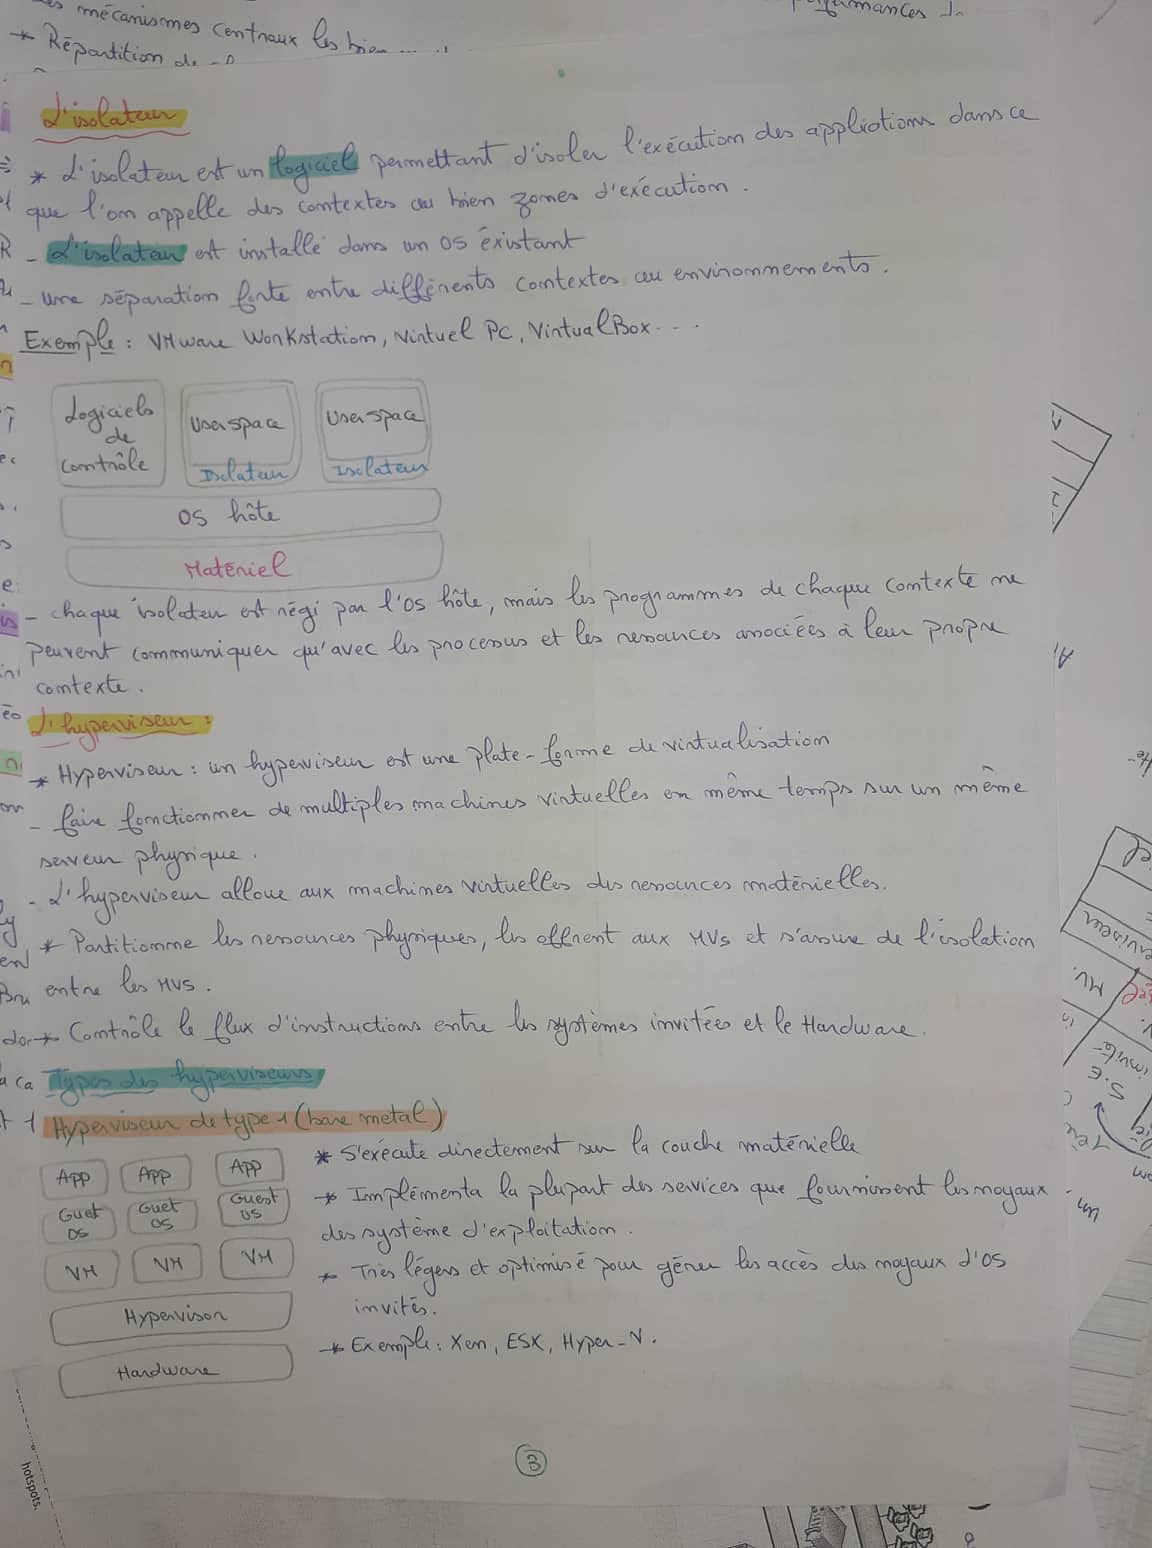 mécanismes centraux les bien
* Répartition de
L'isolateur
* L'isolateur est un logiciel permettant d'isoler l'exécution des appliations dans ce
que l'on appelle des contextes ou bien zones d'exécution.
- L'isolateur est installé dans un OS éxistant
- une séparation forte entre différents contextes ou environnements.
Exemple : VMware Workstation, Virtuel PC, VirtualBox...
Logiciels
de
contrôle
User space
Isolateur
User space
Isolateur
OS hôte
Matériel
- chaque isolateur est régi par l'OS hôte, mais les programmes de chaque contexte ne
peuvent communiquer qu'avec les processus et les ressources associées à leur propre
contexte.
L'hyperviseur :
* Hyperviseur : un hyperviseur est une plate-forme de virtualisation
- faire fonctionner de multiples machines virtuelles en même temps sur un même
serveur physique.
- L'hyperviseur alloue aux machines virtuelles des ressources matérielles.
* Partitionne les ressources physiques, les offrent aux MVs et s'assure de l'isolation
entre les MVS.
* Contrôle le flux d'instructions entre les systèmes invitées et le Hardware.
Types des hyperviseurs
Hyperviseur de type 1 (bare metal)
App App App
Guet OS Guet OS Guest OS
VM VM VM
Hypervisor
Hardware
* S'exécute directement sur la couche matérielle
* Implémenta la plupart des services que fournissent les noyaux
des système d'exploitation.
* Très légers et optimisé pour gérer les accès des noyaux d'OS
invités.
* Exemple : Xen, ESX, Hyper-V.
3
hotspots.